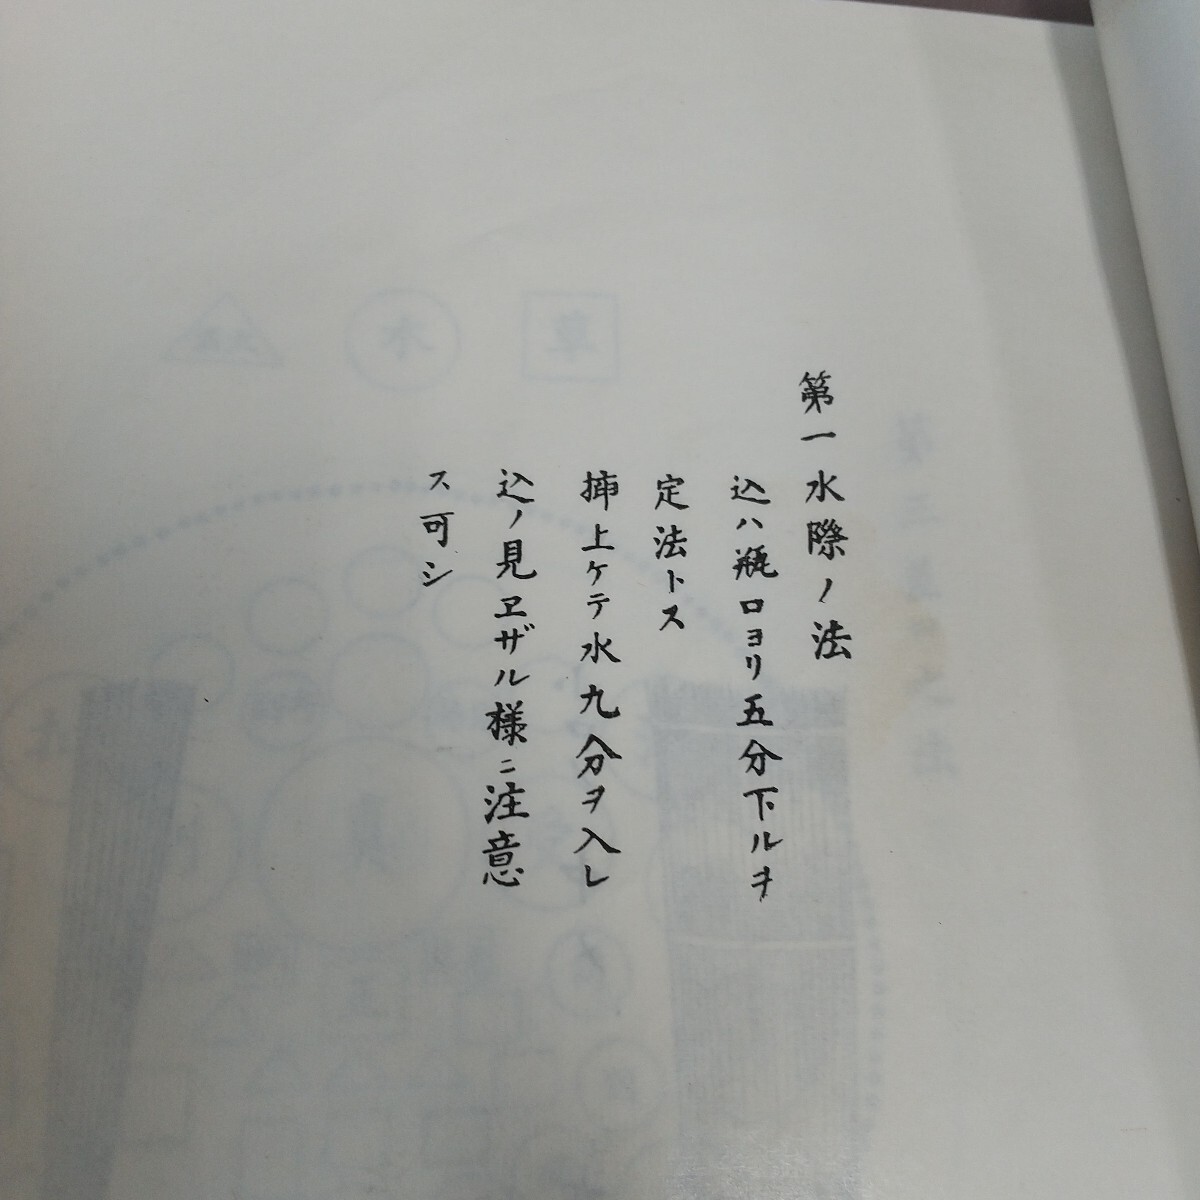 第一水際ノ法
込ハ瓶口ヨリ五分下ルヲ
定法トス
挿上ケテ水九分ヲ入レ
込ノ見ヱザル様ニ注意
ス可シ
草
木